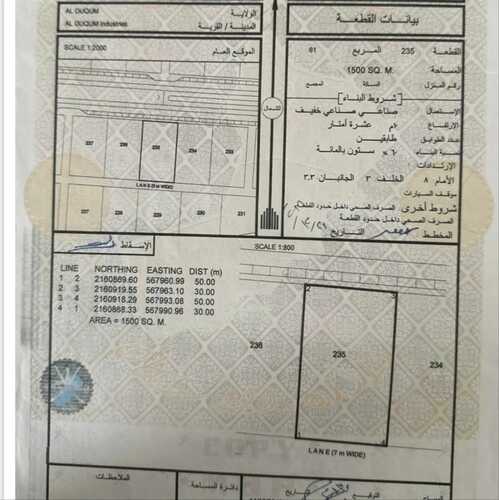 AL DUQUM
AL DUQUM Industries
الولاية
المدينة / القرية
SCALE 1:2000
الموقع العام
237
236
235
234
233
LANE (7m WIDE)
227
228
229
230
231
بيانات القطعة
القطعة 235 المربع 61
المساحة 1500 SQ. M.
رقم المنزل السكة المجمع
[شروط البناء]
الإستعمال صناعي صناعي خفيف
الإرتفاع ١٠م عشرة أمتار
عدد الطوابق طابقين
نسبة البناء ٦٠% ستون بالمائة
الإرتدادات:
الأمام ٨ الخلف ٣ الجانبان ٣,٣
موقف السيارات
شروط أخرى الصرف الصحي داخل حدود القطعة
الصرف الصحي داخل حدود القطعة
المخطط التاريخ
الشمال
الإسقاط
SCALE 1:800
LINE NORTHING EASTING DIST (m)
1 2 2160869.60 567960.99 50.00
2 3 2160919.55 567963.10 30.00
3 4 2160918.29 567993.08 50.00
4 1 2160868.33 567990.96 30.00
AREA = 1500 SQ. M.
236
235
234
LANE (7 m WIDE)
الملاحظات
دائرة المساحة
التوقيع
التاريخ